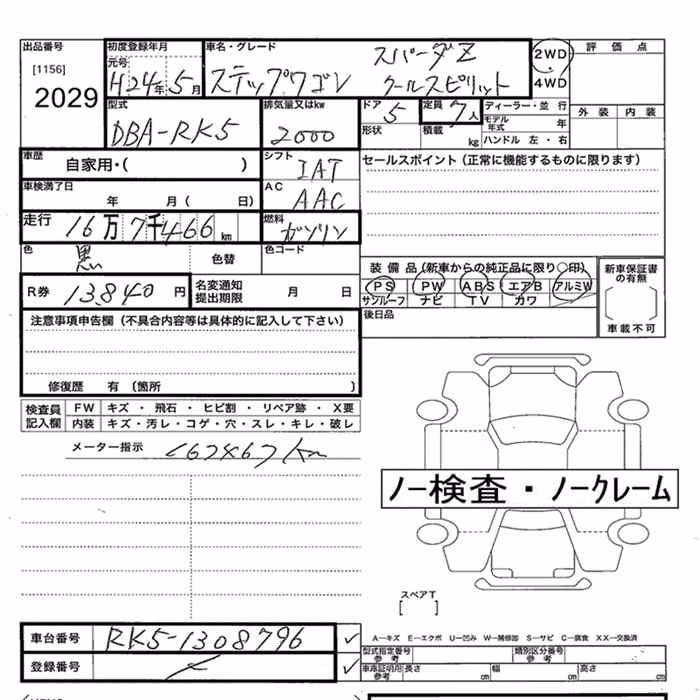 出品番号 初度登録年月 車名・グレード スパーダZ 2WD 評価点
[1156] 元号 H24年5月 ステップワゴン クールスピリット 4WD
2029 型式 排気量又はkw ドア 5 定員 7人 ディーラー・並行 外装 内装
DBA-RK5 2000 形状 積載 kg モデル年式 年
ハンドル 左・右
車歴 自家用・( ) シフト IAT セールスポイント(正常に機能するものに限ります)
車検満了日 年 月( 日) AC AAC
走行 16万7千466km 燃料 ガソリン
色 黒 色替 色コード
装備品(新車からの純正品に限り○印) 新車保証書の有無
R券 13840円 名変通知提出期限 月 日 PS PW ABS エアB アルミW
サンルーフ ナビ TV カワ
注意事項申告欄(不具合内容等は具体的に記入して下さい) 後日品 車載不可
修復歴 有(箇所 )
検査員 FW キズ・飛石・ヒビ割・リペア跡・X要
記入欄 内装 キズ・汚レ・コゲ・穴・スレ・キレ・破レ
メーター指示 167467km
ノー検査・ノークレーム
スペアT
[ ]
車台番号 RK5-1308796 ✓ A―キズ E―エクボ U―凹み W―補修跡 S―サビ C―腐食 XX―交換済
登録番号 ✓ 型式指定番号 参考 類別区分番号 参考
車庫証明用 参考 長さ cm 幅 cm 高さ cm